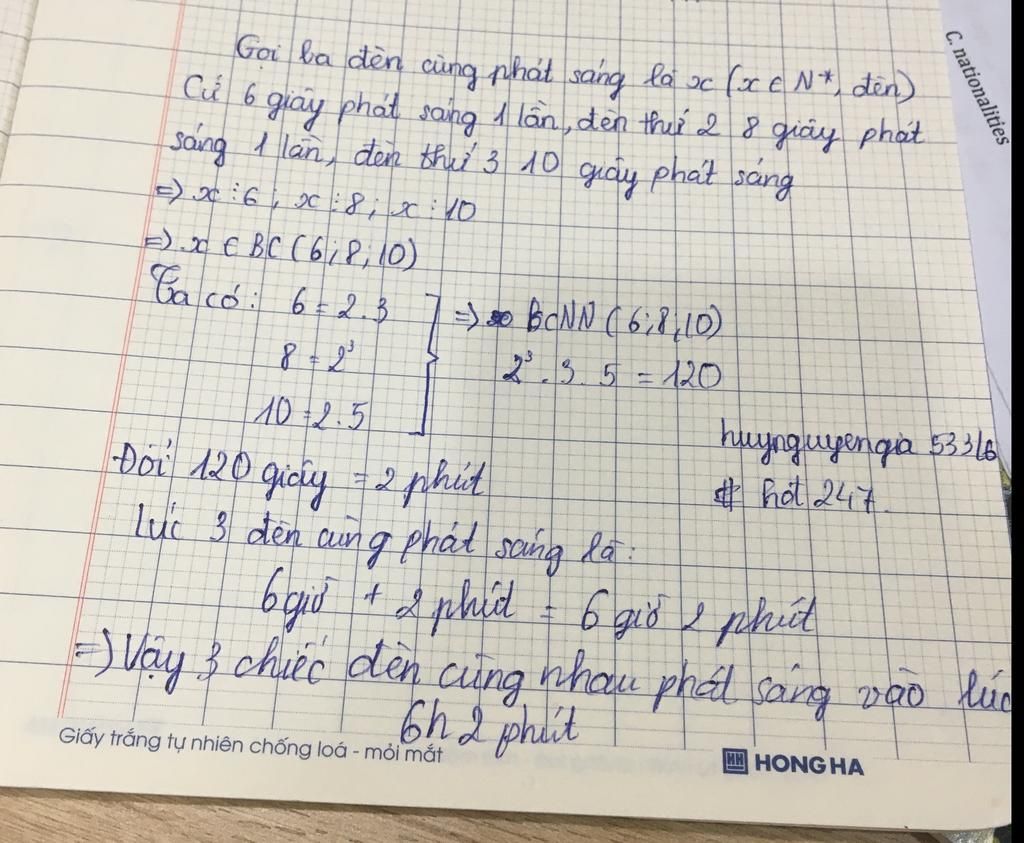 C. nationalities
Gọi ba đèn cùng phát sáng là x (x ∈ N*, đèn)
Cứ 6 giây phát sáng 1 lần, đèn thứ 2 8 giây phát
sáng 1 lần, đèn thứ 3 10 giây phát sáng
=> x ⋮ 6 ; x ⋮ 8 ; x ⋮ 10
=> x ∈ BC (6; 8; 10)
Ta có: 6 = 2.3
8 = 2³
10 = 2.5
=> BCNN (6; 8; 10)
2³ . 3 . 5 = 120
huynguyengia 53316
# hot 247.
Đổi 120 giây = 2 phút
Lúc 3 đèn cùng phát sáng là:
6 giờ + 2 phút = 6 giờ 2 phút
=> Vậy 3 chiếc đèn cùng nhau phát sáng vào lúc
6h 2 phút
Giấy trắng tự nhiên chống loá - mỏi mắt
HH HONG HA